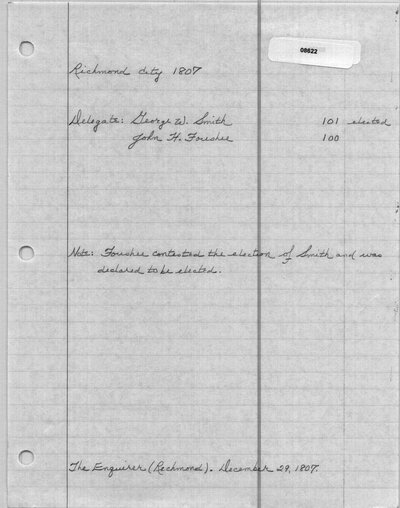 08622
Richmond city 1807
Delegate: George W. Smith 101 elected
John H. Foushee 100
Note: Foushee contested the election of Smith and was
declared to be elected.
The Enquirer (Richmond). December 29, 1807.